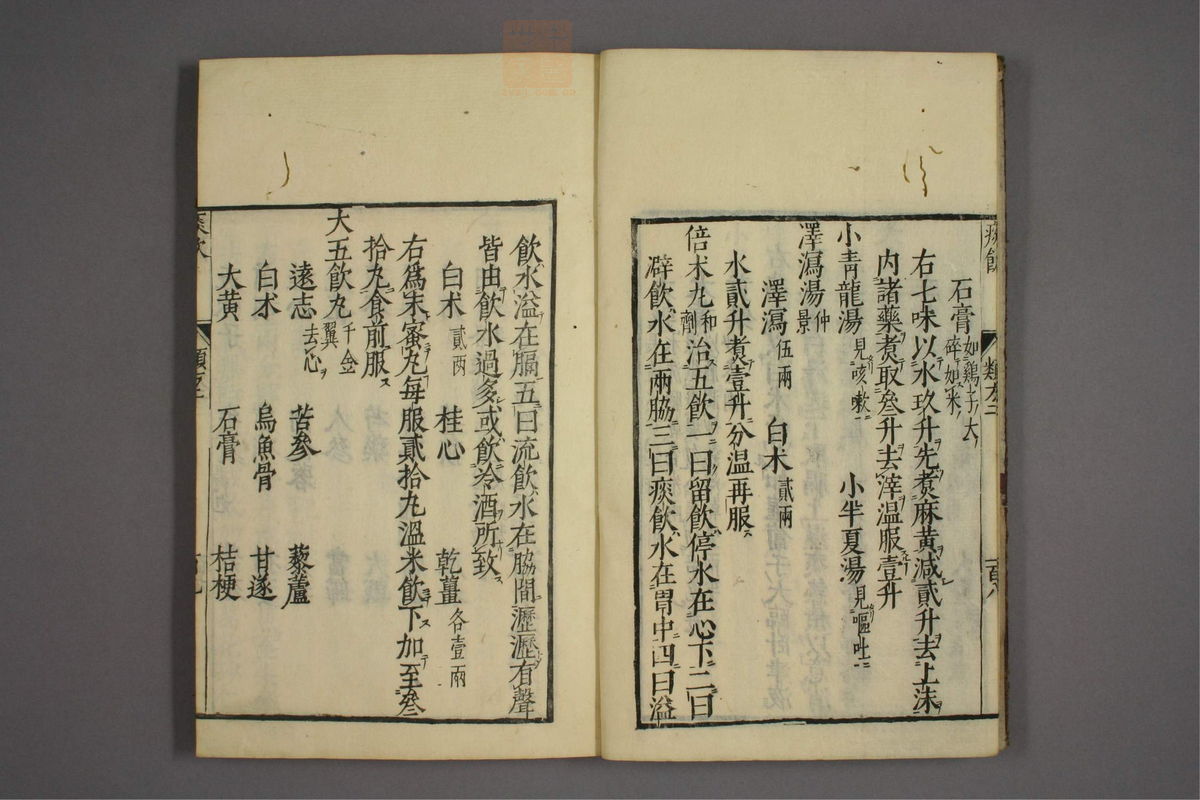 痰飮
類九二
百八
石膏如鷄子大碎如米
右七味以水玖升先煮麻黃減貳升去上沫
內諸藥煮取叄升去滓温服壹升
小靑龍湯見咳嗽 小半夏湯見嘔吐
澤瀉湯仲景
澤瀉伍兩 白朮貳兩
水貳升煮壹升分温再服
倍朮丸和劑治五飲一曰留飲停水在心下二曰
澼飲水在兩脇三曰痰飲水在胃中四曰溢
飲水溢在膈五曰流飲水在脇間瀝瀝有聲
皆由飲水過多或飲冷酒所致
白朮貳兩 桂心 乾薑各壹兩
右爲末蜜丸每服貳拾丸溫米飲下加至叄
拾丸食前服
大五飲丸千金翼
遠志去心 苦參 藜蘆
白朮 烏魚骨 甘遂
大黃 石膏 桔梗